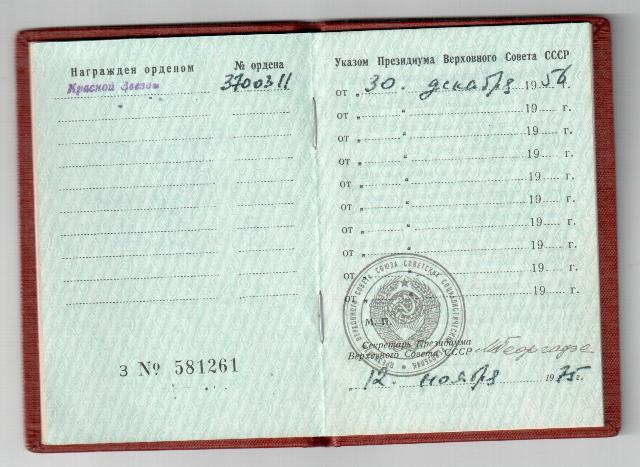 Награжден орденом
№ ордена
Красной Звезды
3700311
З № 581261
Указом Президиума Верховного Совета СССР
от „ 30. декабря 1956 г.
от „ “ 19 г.
от „ “ 19 г.
от „ “ 19 г.
от „ “ 19 г.
от „ “ 19 г.
от „ “ 19 г.
от „ “ 19 г.
от „ “ 19 г.
от „ “ 19 г.
М. П.
Секретарь Президиума
Верховного Совета СССР
М Георгадзе
„ 12. ноября 1975 г.
ВЕРХОВНОГО СОВЕТА СОЮЗА СОВЕТСКИХ СОЦИАЛИСТИЧЕСКИХ